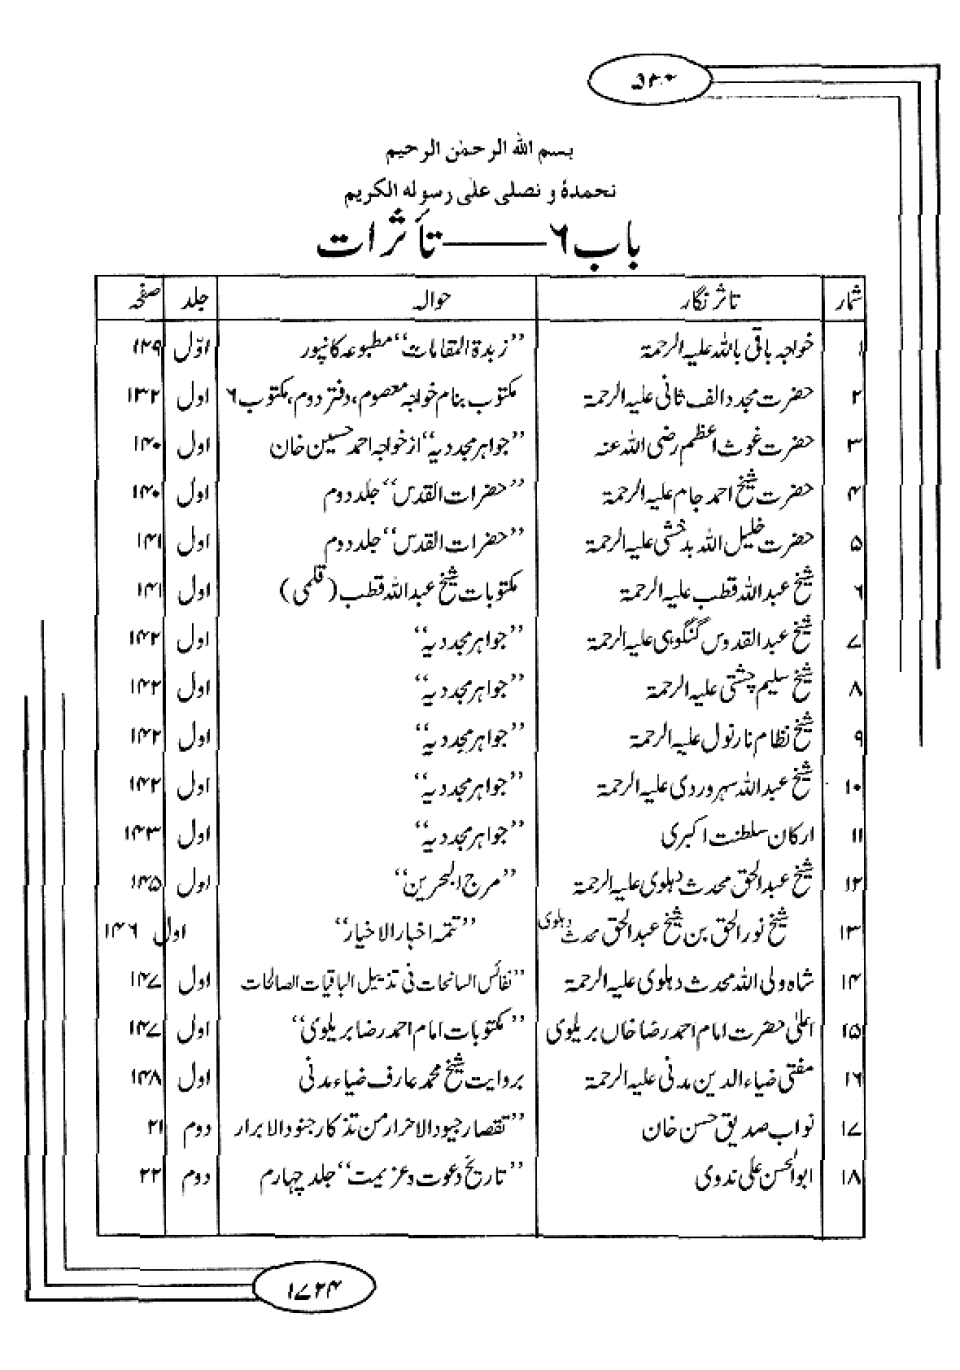 ۵۴۴
بسم الله الرحمن الرحيم
نحمدهٗ و نصلی علٰی رسوله الكريم
باب ۶ ——— تأثرات
شمار تاثر نگار حوالہ جلد صفحہ
۱ خواجہ باقی باللہ علیہ الرحمۃ ’’زبدۃ المقامات‘‘ مطبوعہ کانپور اوّل ۱۲۹
۲ حضرت مجدد الف ثانی علیہ الرحمۃ مکتوب بنام خواجہ معصوم، دفتر دوم، مکتوب ۶ اول ۱۳۲
۳ حضرت غوث اعظم رضی اللہ عنہ ’’جواہر مجددیہ‘‘ از خواجہ احمد حسین خان اول ۱۴۰
۴ حضرت شیخ احمد جام علیہ الرحمۃ ’’حضرات القدس‘‘ جلد دوم اول ۱۴۰
۵ حضرت خلیل اللہ بدخشی علیہ الرحمۃ ’’حضرات القدس‘‘ جلد دوم اول ۱۴۱
۶ شیخ عبداللہ قطب علیہ الرحمۃ مکتوبات شیخ عبداللہ قطب (قلمی) اول ۱۴۱
۷ شیخ عبدالقدوس گنگوہی علیہ الرحمۃ ’’جواہر مجددیہ‘‘ اول ۱۴۲
۸ شیخ سلیم چشتی علیہ الرحمۃ ’’جواہر مجددیہ‘‘ اول ۱۴۲
۹ شیخ نظام نارنول علیہ الرحمۃ ’’جواہر مجددیہ‘‘ اول ۱۴۲
۱۰ شیخ عبداللہ سہروردی علیہ الرحمۃ ’’جواہر مجددیہ‘‘ اول ۱۴۲
۱۱ ارکان سلطنت اکبری ’’جواہر مجددیہ‘‘ اول ۱۴۳
۱۲ شیخ عبدالحق محدث دہلوی علیہ الرحمۃ ’’مرج البحرین‘‘ اول ۱۴۵
۱۳ شیخ نور الحق بن شیخ عبدالحق محدث دہلوی ’’تتمہ اخبار الاخیار‘‘ اول ۱۴۶
۱۴ شاہ ولی اللہ محدث دہلوی علیہ الرحمۃ ’’نفائس السانحات فی تذییل الباقیات الصالحات اول ۱۴۷
۱۵ اعلیٰ حضرت امام احمد رضا خاں بریلوی ’’مکتوبات امام احمد رضا بریلوی‘‘ اول ۱۴۷
۱۶ مفتی ضیاء الدین مدنی علیہ الرحمۃ بروایت شیخ محمد عارف ضیاء مدنی اول ۱۴۸
۱۷ نواب صدیق حسن خان ’’تقصار جیود الاحرار من تذکار جنود الابرار دوم ۲۱
۱۸ ابوالحسن علی ندوی ’’تاریخ دعوت و عزیمت‘‘ جلد چہارم دوم ۲۲
۱۷۲۴